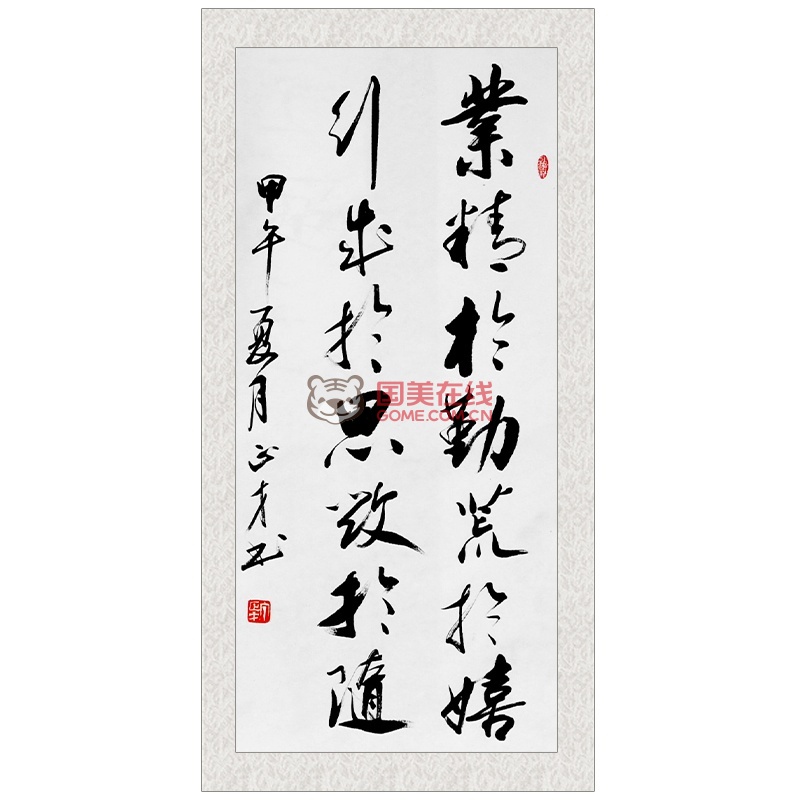 業精於勤荒於嬉
行成於思毀於隨
甲午夏月正才书
国美在线
GOME.COM.CN